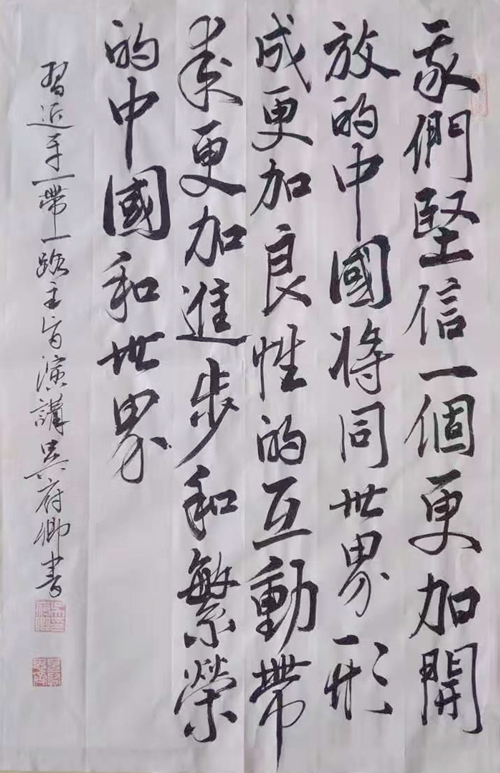 我們堅信一個更加開
放的中國将同世界形
成更加良性的互動帶
來更加進步和繁榮
的中國和世界
習近平一帶一路主旨演講吳府卿書